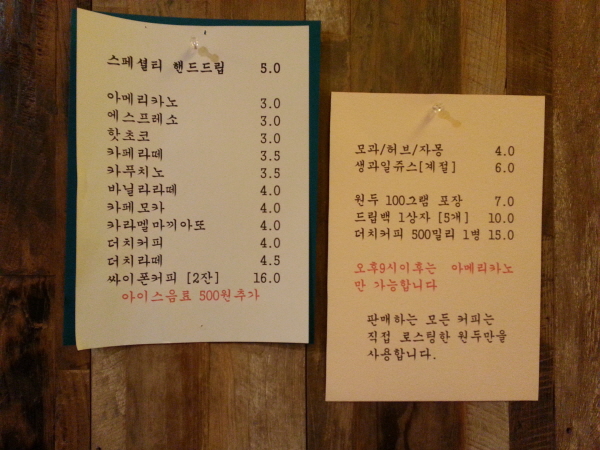 스페셜티 핸드드립 5.0
아메리카노 3.0
에스프레소 3.0
핫초코 3.0
카페라떼 3.5
카푸치노 3.5
바닐라라떼 4.0
카페모카 4.0
카라멜마끼아또 4.0
더치커피 4.0
더치라떼 4.5
싸이폰커피 [2잔] 16.0
아이스음료 500원추가
모과/허브/자몽 4.0
생과일쥬스[계절] 6.0
원두 100그램 포장 7.0
드립백 1상자 [5개] 10.0
더치커피 500밀리 1병 15.0
오후9시이후는 아메리카노
만 가능합니다
판매하는 모든 커피는
직접 로스팅한 원두만을
사용합니다.